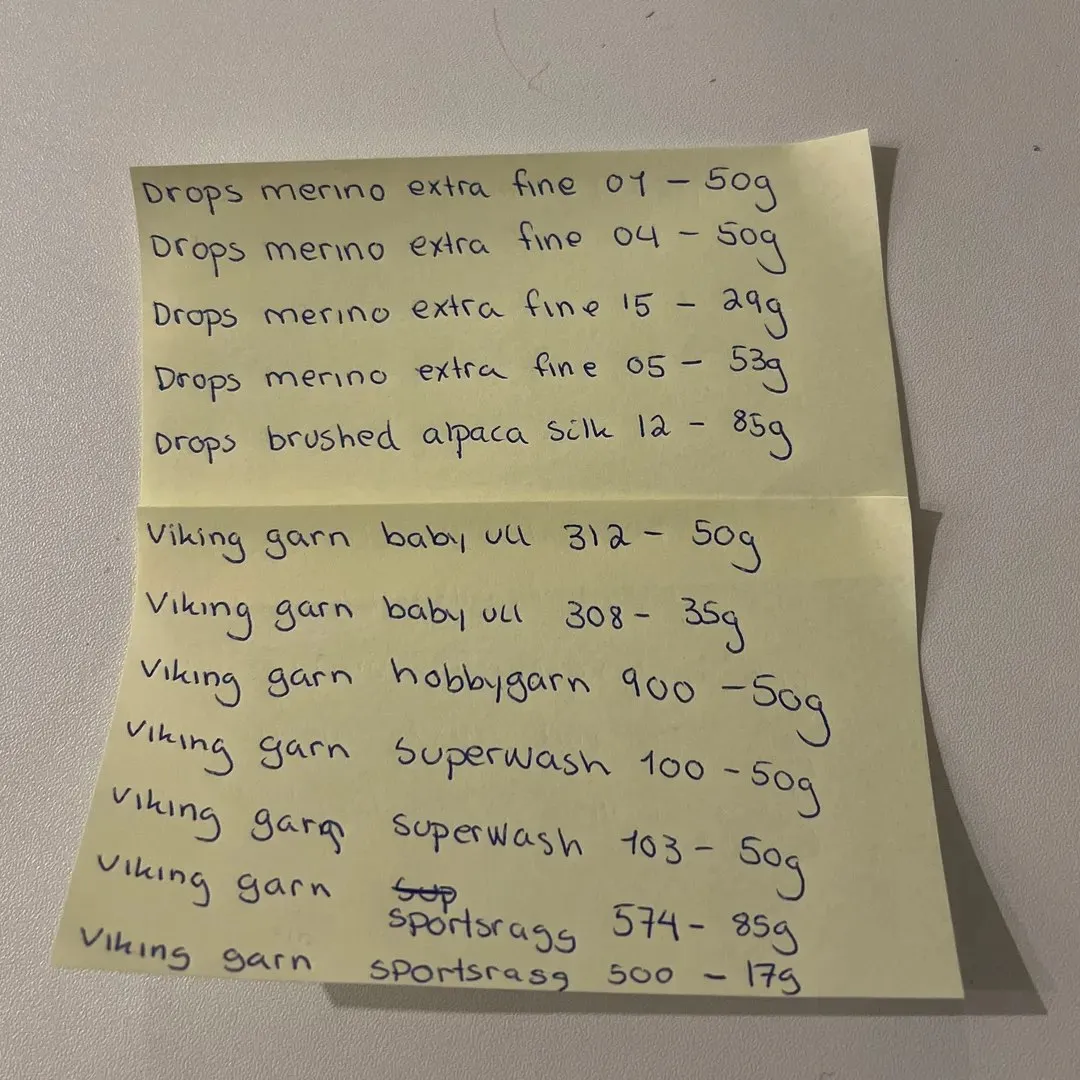 Drops merino extra fine 01 - 50g
Drops merino extra fine 04 - 50g
Drops merino extra fine 15 - 29g
Drops merino extra fine 05 - 53g
Drops brushed alpaca silk 12 - 85g
Viking garn baby ull 312 - 50g
Viking garn baby ull 308 - 35g
Viking garn hobbygarn 900 - 50g
Viking garn superwash 100 - 50g
Viking garn superwash 103 - 50g
Viking garn sportsragg 574 - 85g
Viking garn sportsragg 500 - 17g